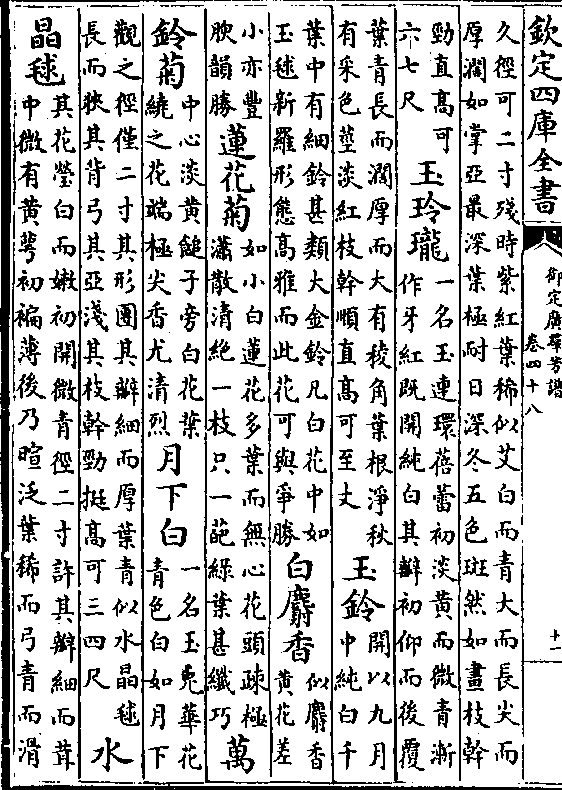 欽定四庫全書
御定廣羣芳譜
卷四十八
十一
久徑可二寸殘時紫紅葉稀似艾白而青大而長尖而
厚濶如掌亞最深葉極耐日深冬五色斑然如畫枝幹
勁直髙可
六七尺
玉玲瓏
一名玉連環蓓蕾初淡黄而微青漸
作牙紅既開純白其瓣初仰而後覆
葉青長而濶厚而大有稜角葉根淨秋
有采色莖淡紅枝幹順直髙可至丈
玉鈴
開以九月
中純白千
葉中有細鈴甚類大金鈴凡白花中如
玉毬新羅形態髙雅而此花可與爭勝
白麝香
似麝香
黄花差
小亦豐
腴韻勝
蓮花菊
如小白蓮花多葉而無心花頭疎極
瀟散清絶一枝只一葩綠葉甚纖巧
萬
鈴菊
中心淡黄鎚子旁白花葉
繞之花端極尖香尤清烈
月下白
一名玉兎華花
青色白如月下
觀之徑僅二寸其形圎其瓣細而厚葉青似水晶毬
長而狹其背弓其亞淺其枝幹勁挺髙可三四尺
水
晶毬
其花瑩白而嫩初開微青徑二寸許其瓣細而茸
中微有黄萼初褊薄後乃暄泛葉稀而弓青而滑